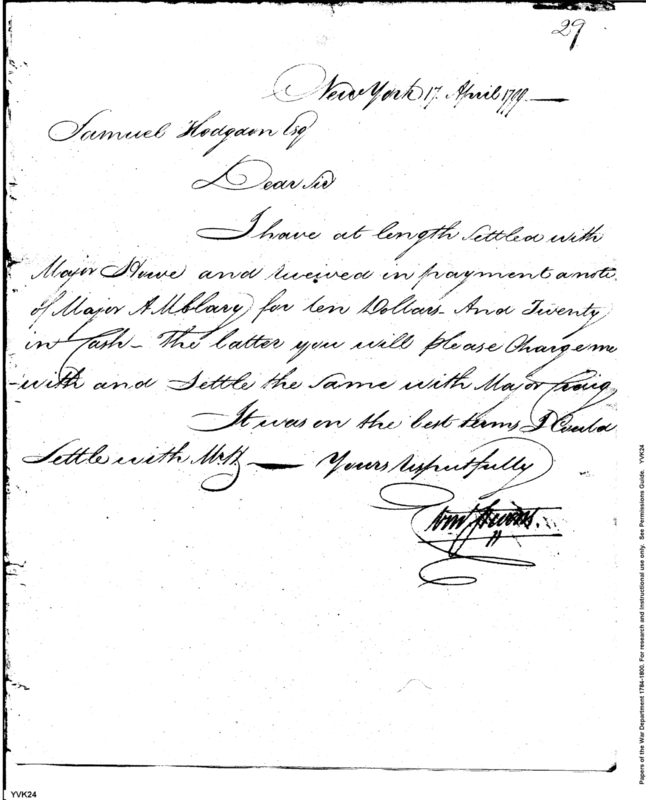 29
New York 17. April 1799.
Samuel Hodgdon Esq
Dear Sir
I have at length settled with
Major Howe and received in payment a note
of Major for ten Dollars - And Twenty
in Cash - The latter you will please Charge me
with and Settle the same with Major Craig
It was on the best terms I Could
Settle with Mr H — Yours respectfully
Papers of the War Department 1784-1800. For research and instructional use only. See Permissions Guide. YVK24
YVK24